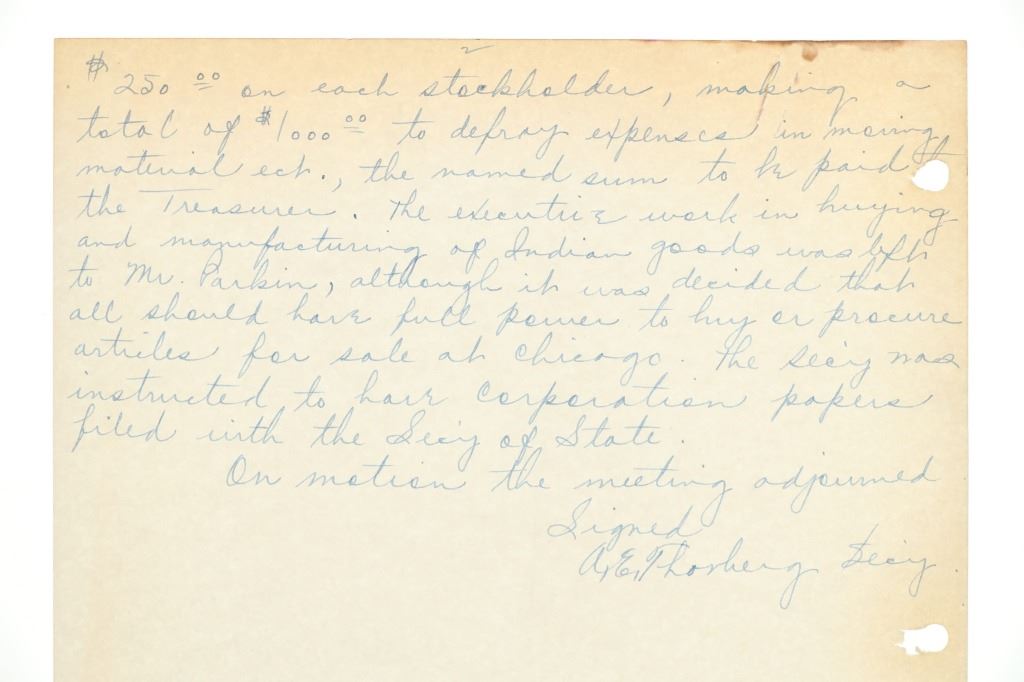 2
$250 00 on each stockholder, making a
total of $1000 00 to defray expenses in moving
material ect., the named sum to be paid
the Treasurer. The executive work in buying
and manufacturing of Indian goods was left
to Mr. Parkin, although it was decided that
all should have full power to buy or procure
articles for sale at Chicago. The Secy was
instructed to have corporation papers
filed with the Secy of State.
On motion the meeting adjourned
Signed
A.E. Thorberg Secy